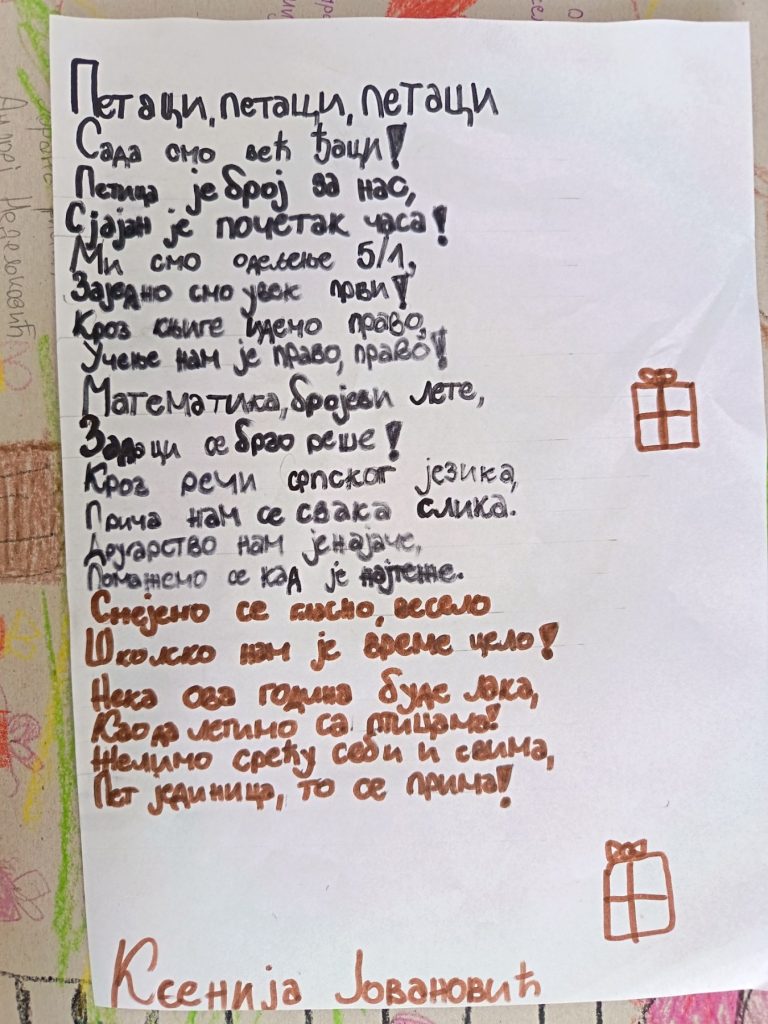 Петаци, петаци, петаци
Сада смо већ ђаци!
Петица је број за нас,
Сјајан је почетак часа!
Ми смо одељење 5/1,
Заједно смо увек први!
Кроз књиге идемо право,
Учење нам је право, право!
Математика, бројеви лете,
Задаци се брзо реше!
Кроз речи српског језика,
Прича нам се свака слика.
Другарство нам је најаче,
Помажемо се кад је најтеже.
Смејемо се гласно, весело
Школско нам је време цело!
Нека ова година буде лака,
Као да летимо са птицама!
Желимо срећу себи и свима,
Пет јединица, то се прима!
Ксенија Јовановић